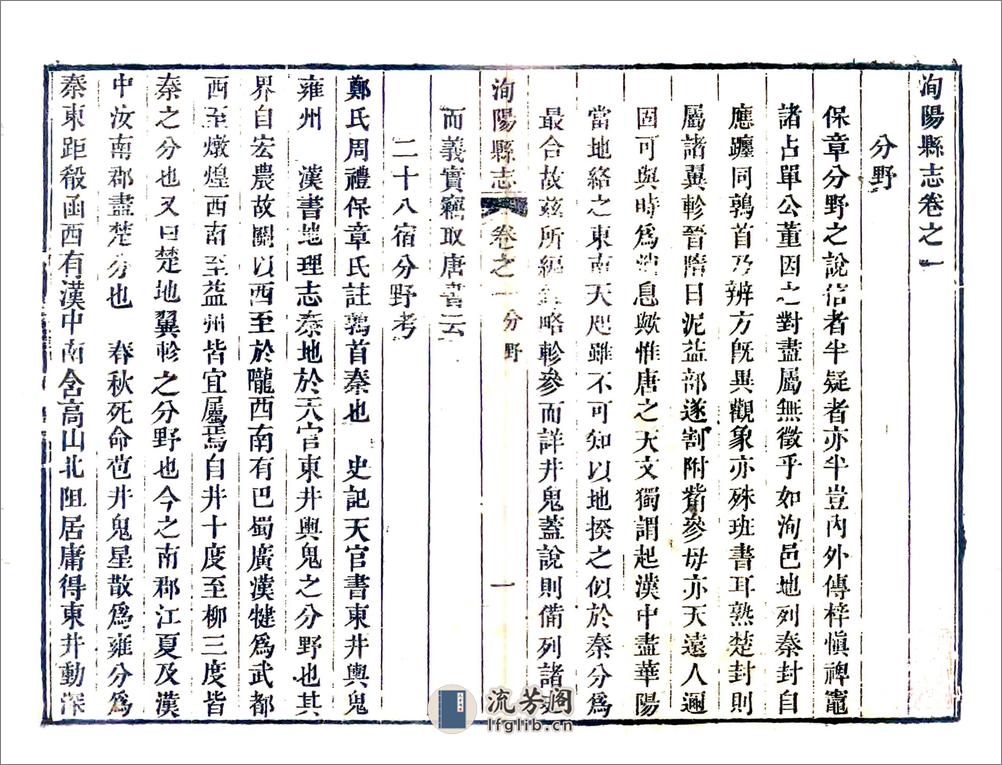 洵陽縣志卷之一
分野
保章分野之說信者半疑者亦半豈內外傳梓愼禆竈
諸占單公董因之對盡屬無徵乎如洵邑地列秦封自
應躔同鶉首乃辨方旣異觀象亦殊班書耳熟楚封則
屬諸翼軫晉隋日泥益部遂割附觜參毋亦天遠人邇
固可與時爲消息歟惟唐之天文獨謂起漢中盡華陽
當地絡之東南天咫雖不可知以地揆之似於秦分爲
最合故兹所編 略軫參而詳井鬼蓋說則備列諸
而義實竊取唐書云
洵陽縣志 卷之一 分野 一
二十八宿分野考
鄭氏周禮保章氏註鶉首秦也 史記天官書東井輿鬼
雍州 漢書地理志秦地於天官東井輿鬼之分野也其
界自宏農故關以西至於隴西南有巴蜀廣漢犍爲武都
西至燉煌西南至益州皆宜屬焉自井十度至柳三度皆
秦之分也又曰楚地翼軫之分野也今之南郡江夏及漢
中汝南郡盡楚分也 春秋死命苞井鬼星散爲雍分爲
秦東距殽函西有漢中南含高山北阻居庸得東井動深
流芳阁
lfglib.cn